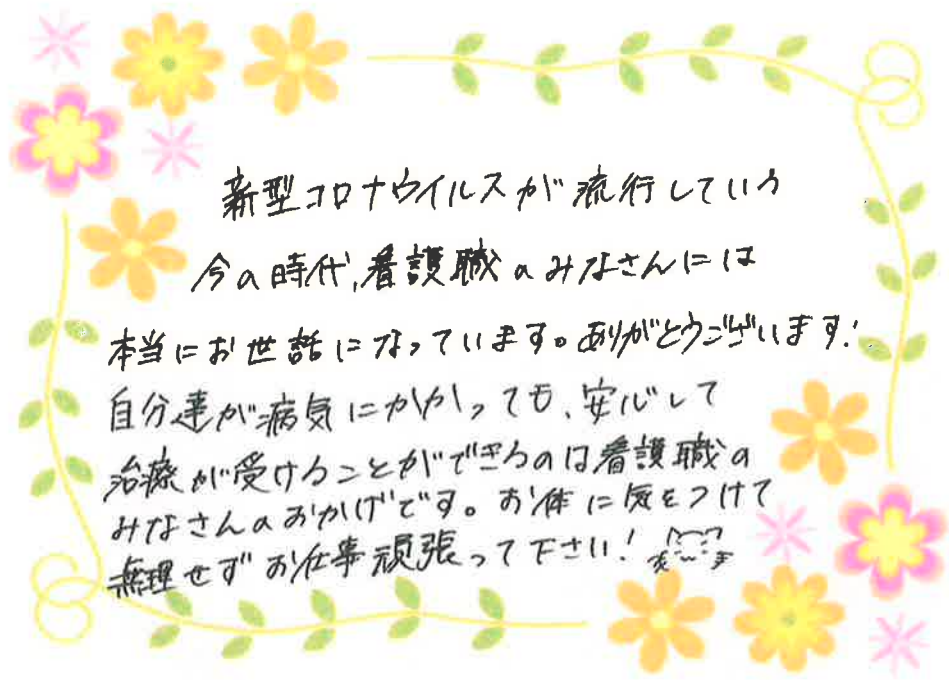 新型コロナウイルスが流行している
今の時代、看護職のみなさんには
本当にお世話になっています。ありがとうございます!
自分達が病気にかかっても、安心して
治療が受けることができるのは看護職の
みなさんのおかげです。お体に気をつけて
無理せずお仕事頑張って下さい!